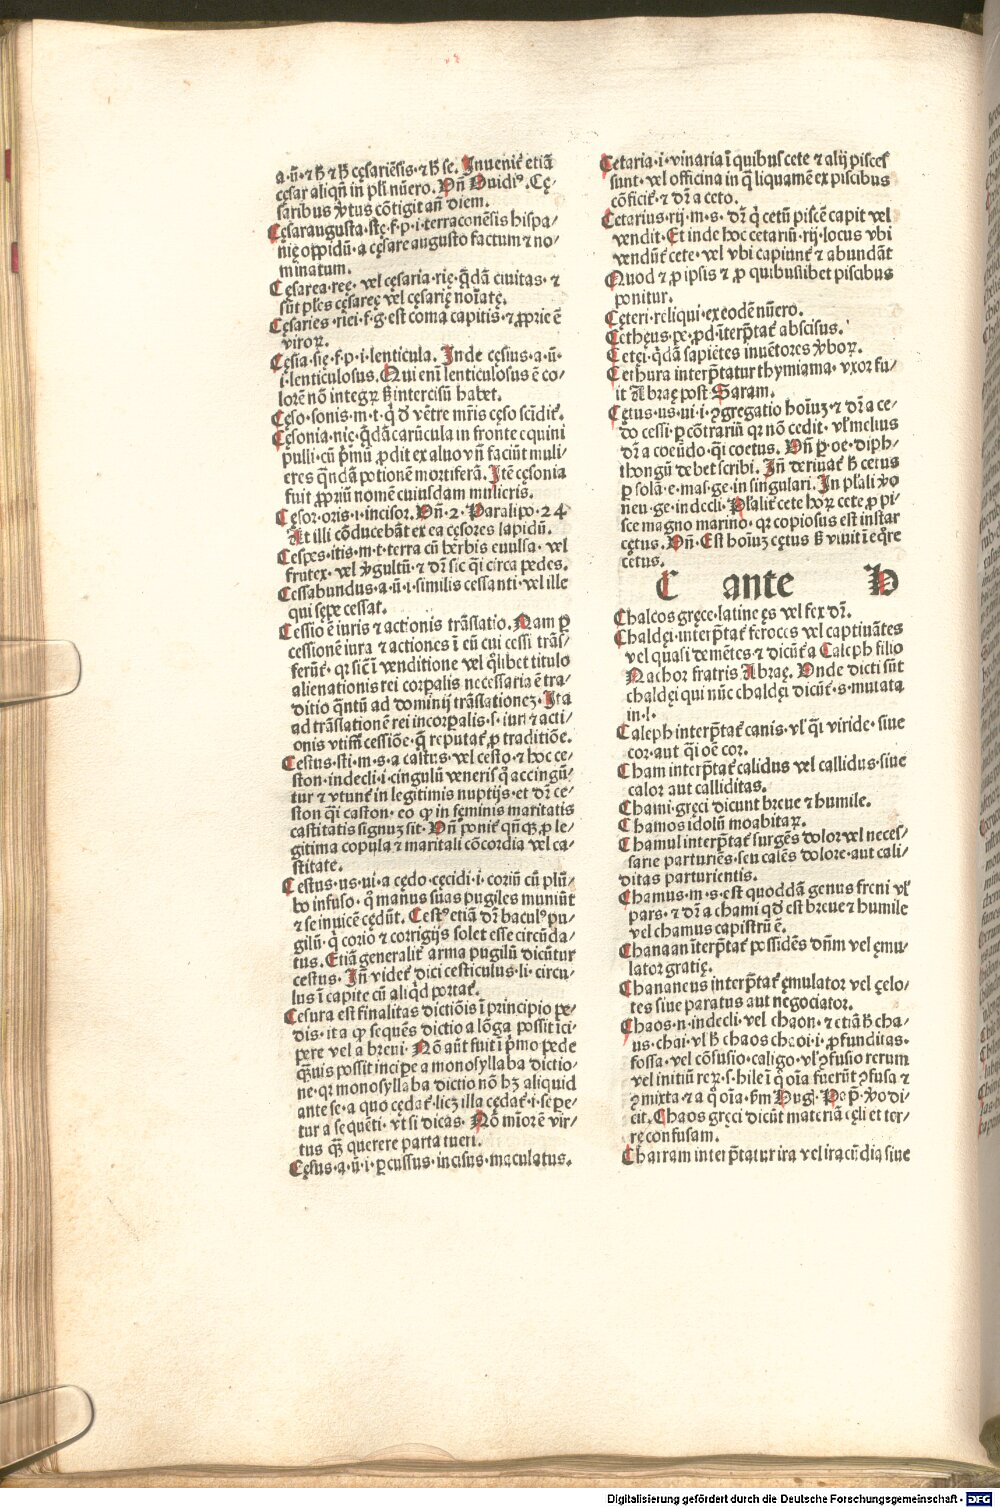 a·ū·⁊ hͦ ⁊ hͤ cęsariēsis·⁊ hͦ se. Inuenit̄ etiā
cęsar aliqn̄ in pl̄i nūero. Vn̄ Ouidiꝰ. Cę-
saribus ꝟtus cōtigit an̄ diem.
Cęsaraugusta·stę·f·p·i·terraconēsis hispa-
nię oppidū·a cęsare augusto factum ⁊ no-
minatum.
Cęsarea·reę· vel cęsaria·rię·q̄dā ciuitas·⁊
sūt pl̄es cęsareę vel cęsarię noīatę.
Cęsaries·riei·f·g·est coma capitis·⁊ ꝓprie ē
virorꝝ.
Cęsia·się·f·p·i·lenticula. Inde cęsius·a·ū·
i·lenticulosus. Qui eni lenticulosus ē co-
lorē nō integrꝝ sꝫ intercisū habet.
Cęso·sonis·m·t·q̇ d̄ vētre mr̄is cęso scīdit̄.
Cęsonia·nię·q̄dā carūcula in fronte equini
pulli·cū pⁱmū ꝓdit ex aluo vn̄ faciūt muli
eres q̄ndā potionē mortiferā. Itē cęsonia
fuit ꝓpriū nomē cuiusdam mulieris.
Cęsor·oris·i·incisor. Vn̄·2·Paralipo·24
At illi cōducebāt ex ea cęsores lapidū.
Cespes·itis·m·t·terra cū herbis euulsa· vel
frutex· vel ꝟgultū·⁊ dr̄ sic q̄i circa pedes.
Cessabundus·a·ū·i·similis cessanti·vel ille
qui sępe cessat.
Cessio ē iuris ⁊ actionis trāslatio. Nam ꝑ
cessionē iura ⁊ actiones ī eū cui cessi trās-
ferūt̄· qꝛ sic ī venditione vel q̄libet titulo
alienationis rei corꝑalis necessaria ē tra-
ditio q̄ntū ad dominij trāslationeꝫ·Ita
ad trāslationē rei incorꝑalis·s·iuri ⁊ acti-
onis vtiſſi cessiōe·q̄ reputat̄ ꝓ traditiōe.
Cestus·sti·m·s·a castus·vel cesto·⁊ hoc ce-
ston·indecli·i·cingulū veneris q̊ accingū-
tur ⁊ vtunt̄ in legitimis nuptijs·et dr̄ ce-
ston q̄i caston· eo ꝙ in feminis maritatis
castitatis signuꝫ sit. Vn̄ ponit̄ qn̄qꝫ ꝓ le-
gitima copula ⁊ maritali cōcordia vel ca-
stitate.
Cestus·us·ui·a cędo·cęcidi·i·coriū cū plū-
bo infuso· q̊ manus suas pugiles muniūt
⁊ se inuicē cędūt. Cestꝰ etiā dr̄ baculꝰ pu-
gilū·q̇ corio ⁊ corrigijs solet esse circūda-
tus. Etiā generalit̄ arma pugilū dicūtur
cestus· Iñ videt̄ dici cesticulus·li·circu-
lus ī capite cū aliqͥd portat̄.
Cesura est finalitas dictiōis ī principio pe-
dis·ita ꝙ sequēs dictio a lōga possit īci-
pere vel a breui. Nō aūt fuit ī pⁱmo pede
qꝫuis possit incipe a monosyllaba dictio-
ne·qꝛ monosyllaba dictio nō hꝫ aliquid
ante se·a quo cędat̄·licꝫ illa cędat̄·i·sepe-
tur a sequēti· vt si dicas. Nō miōr ē vir-
tus qꝫ querere parta tueri.
Cęsus·a·ū·i·ꝑcussus·incisus·maculatus.
Cetaria·i·viuaria ī quibus cete ⁊ alij pisces
sunt· vel officina in q̄ liquamē ex piscibus
cōficit̄·⁊ dr̄ a ceto.
Cetarius·rij·m·s· dr̄ q̇ cetū piscē capit vel
vendit·Et inde hoc cetariū·rij·locus vbi
vendūt̄ cete· vel vbi capiunt̄ ⁊ abundāt
Quod ⁊ ꝓ ipsis ⁊ ꝓ quibuslibet piscibus
ponitur.
Cęteri·reliqui·ex eodē nūero.
Cetheus·pe·ꝓd·īterp̄tat̄ abscisus.
Cetei·q̄dā sapiētes inuētores ꝟborꝝ.
Cethura interp̄tatur thymiama· vxor fu-
it Abraę post Saram.
Cętus·us·ui·i·ꝯgregatio hoīuꝫ·⁊ dr̄ a ce-
do cessi·ꝑ cōtrariū qꝛ nō cedit· vl̄ melius
dr̄ a coeūdo·q̄i coetus. Vn̄ ꝑ·oe·diph-
thongū debet scribi. Iñ deriuat̄ hͨ cetus
ꝑ solā·e·mas·ge·in singulari. In pl̄ali ꝟo
neu·ge·indecli·Pl̄alit̄ cete horꝝ cete ꝓ pi-
sce magno marino· qꝛ copiosus est instar
cętus. Vn̄·Est hoīuꝫ cętus sꝫ viuit ī eq̄re
cetus.
C ante H
Chalcos gręce·latine ęs vel fex dr̄.
Chaldęi·interp̄tat̄ feroces vel captiuātes
vel quasi demētes·⁊ dicūt̄ a Caleph filio
Nachor fratris Abraę. Vnde dicti sūt
chaldęi qui nūc chaldęi dicūt̄·s·mutata
in·l·
Caleph interp̄tat̄ canis·vl̄ q̄i viride· siue
cor·aut q̄i oē cor.
Cham interp̄tat̄ calidus vel callidus·siue
calor aut calliditas.
Chami·gręci dicunt breue ⁊ humile.
Chamos idolū moabitaꝝ.
Chamul interp̄tat̄ surgēs dolor vel neces-
sarie parturiēs·seu calēs dolore·aut cali-
ditas parturientis.
Chamus·m·s·est quoddā genus freni vl̄
pars·⁊ dr̄ a chami qd̄ est breue ⁊ humile
vel chamus capistrū ē.
Chanaan īterp̄tat̄ possidēs dn̄m vel ęmu-
lator gratię.
Chananeus interp̄tat̄ ęmulator vel çelo-
tes siue paratus aut negociator.
Chaos·n·indecli·vel chaon·⁊ etiā hͨ cha-
us·chai·vl̄ hͦ chaos chaoi·i·ꝓfunditas·
fossa·vel cōfusio·caligo·vl̄ ꝯfusio rerum
vel initiū reꝝ·s·hile ī q̊ oīa fuerūt ꝯfusa ⁊
ꝯmixta ⁊ a q̊ oīa·ẜm Hug·Pap̄·ꝟo di-
cit·Chaos gręci dicūt materiā cęli et ter-
rę confusam.
Charram interp̄tatur ira vel iracūdia siue
Digitalisierung gefördert durch die Deutsche Forschungsgemeinschaft - DFG